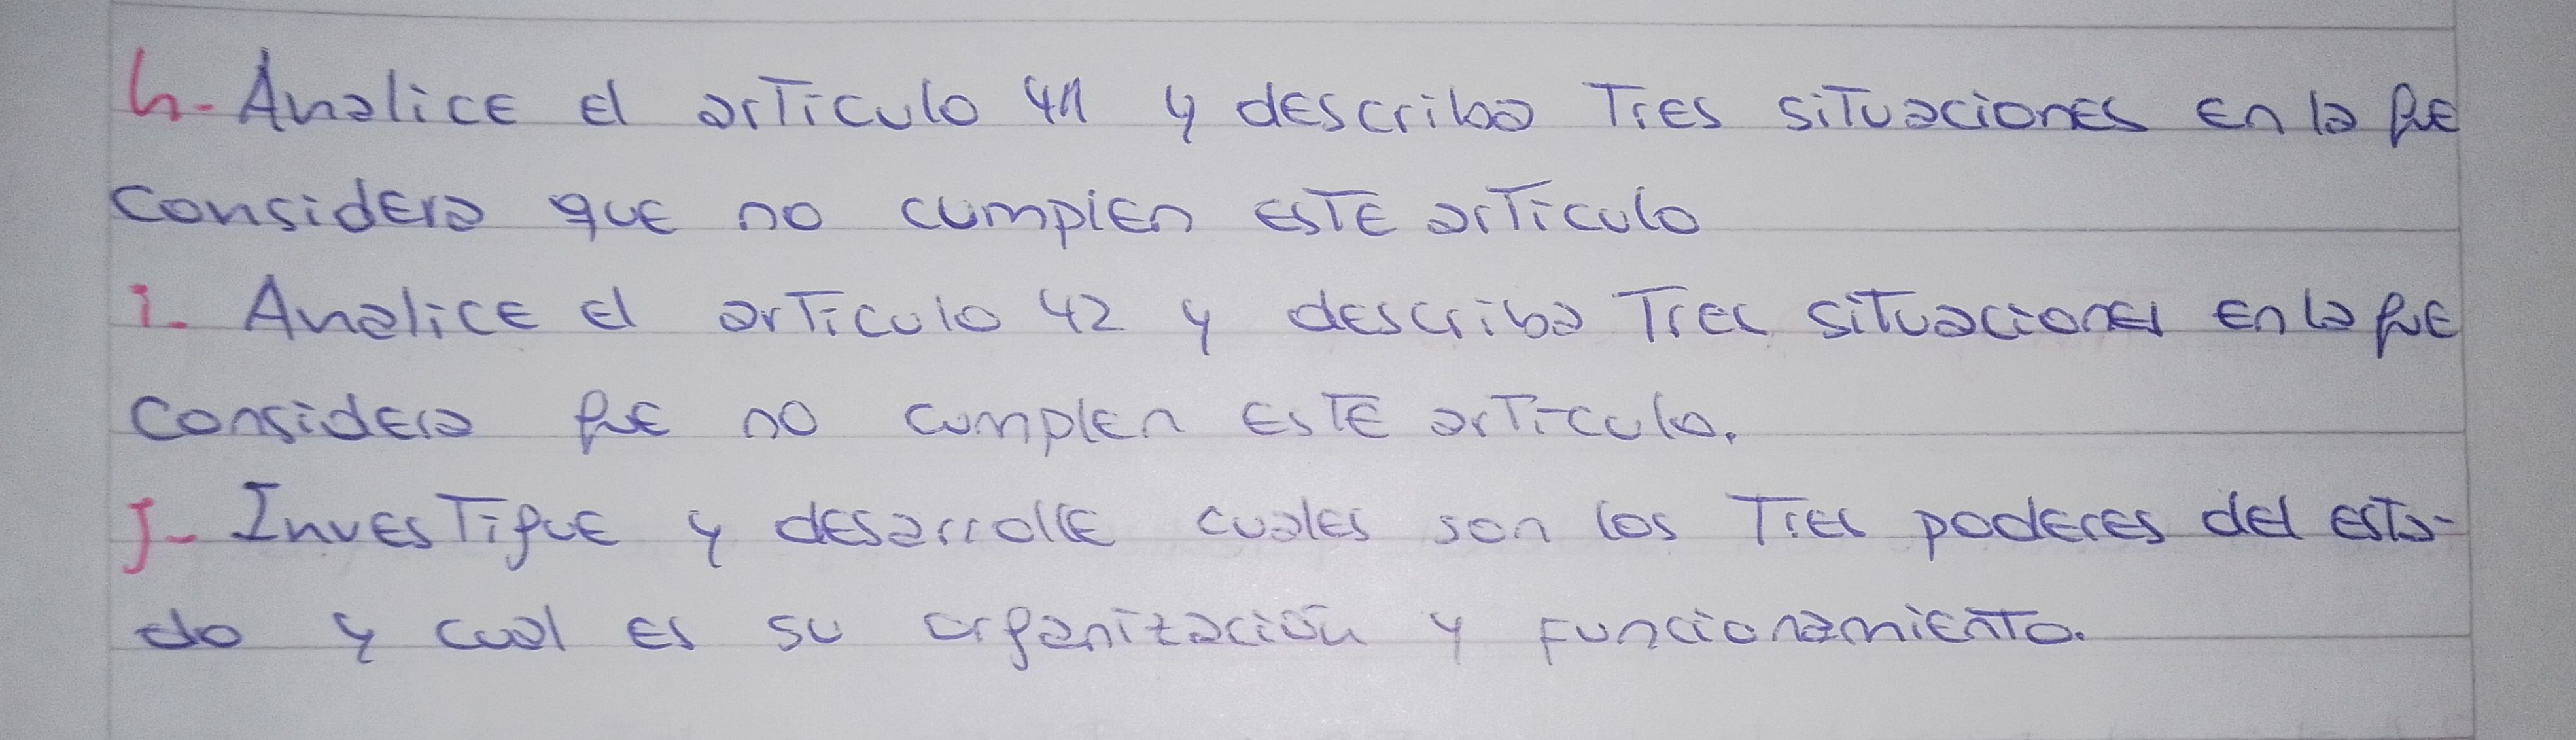 h- Analice el artículo 41 y describa tres situaciones en la que
considera que no cumplen este artículo
i- Analice el artículo 42 y describa tres situaciones en la que
considera que no cumplen este artículo.
J- Investigue y desarrolle cuales son los tres poderes del esta-
do y cual es su organización y funcionamiento.